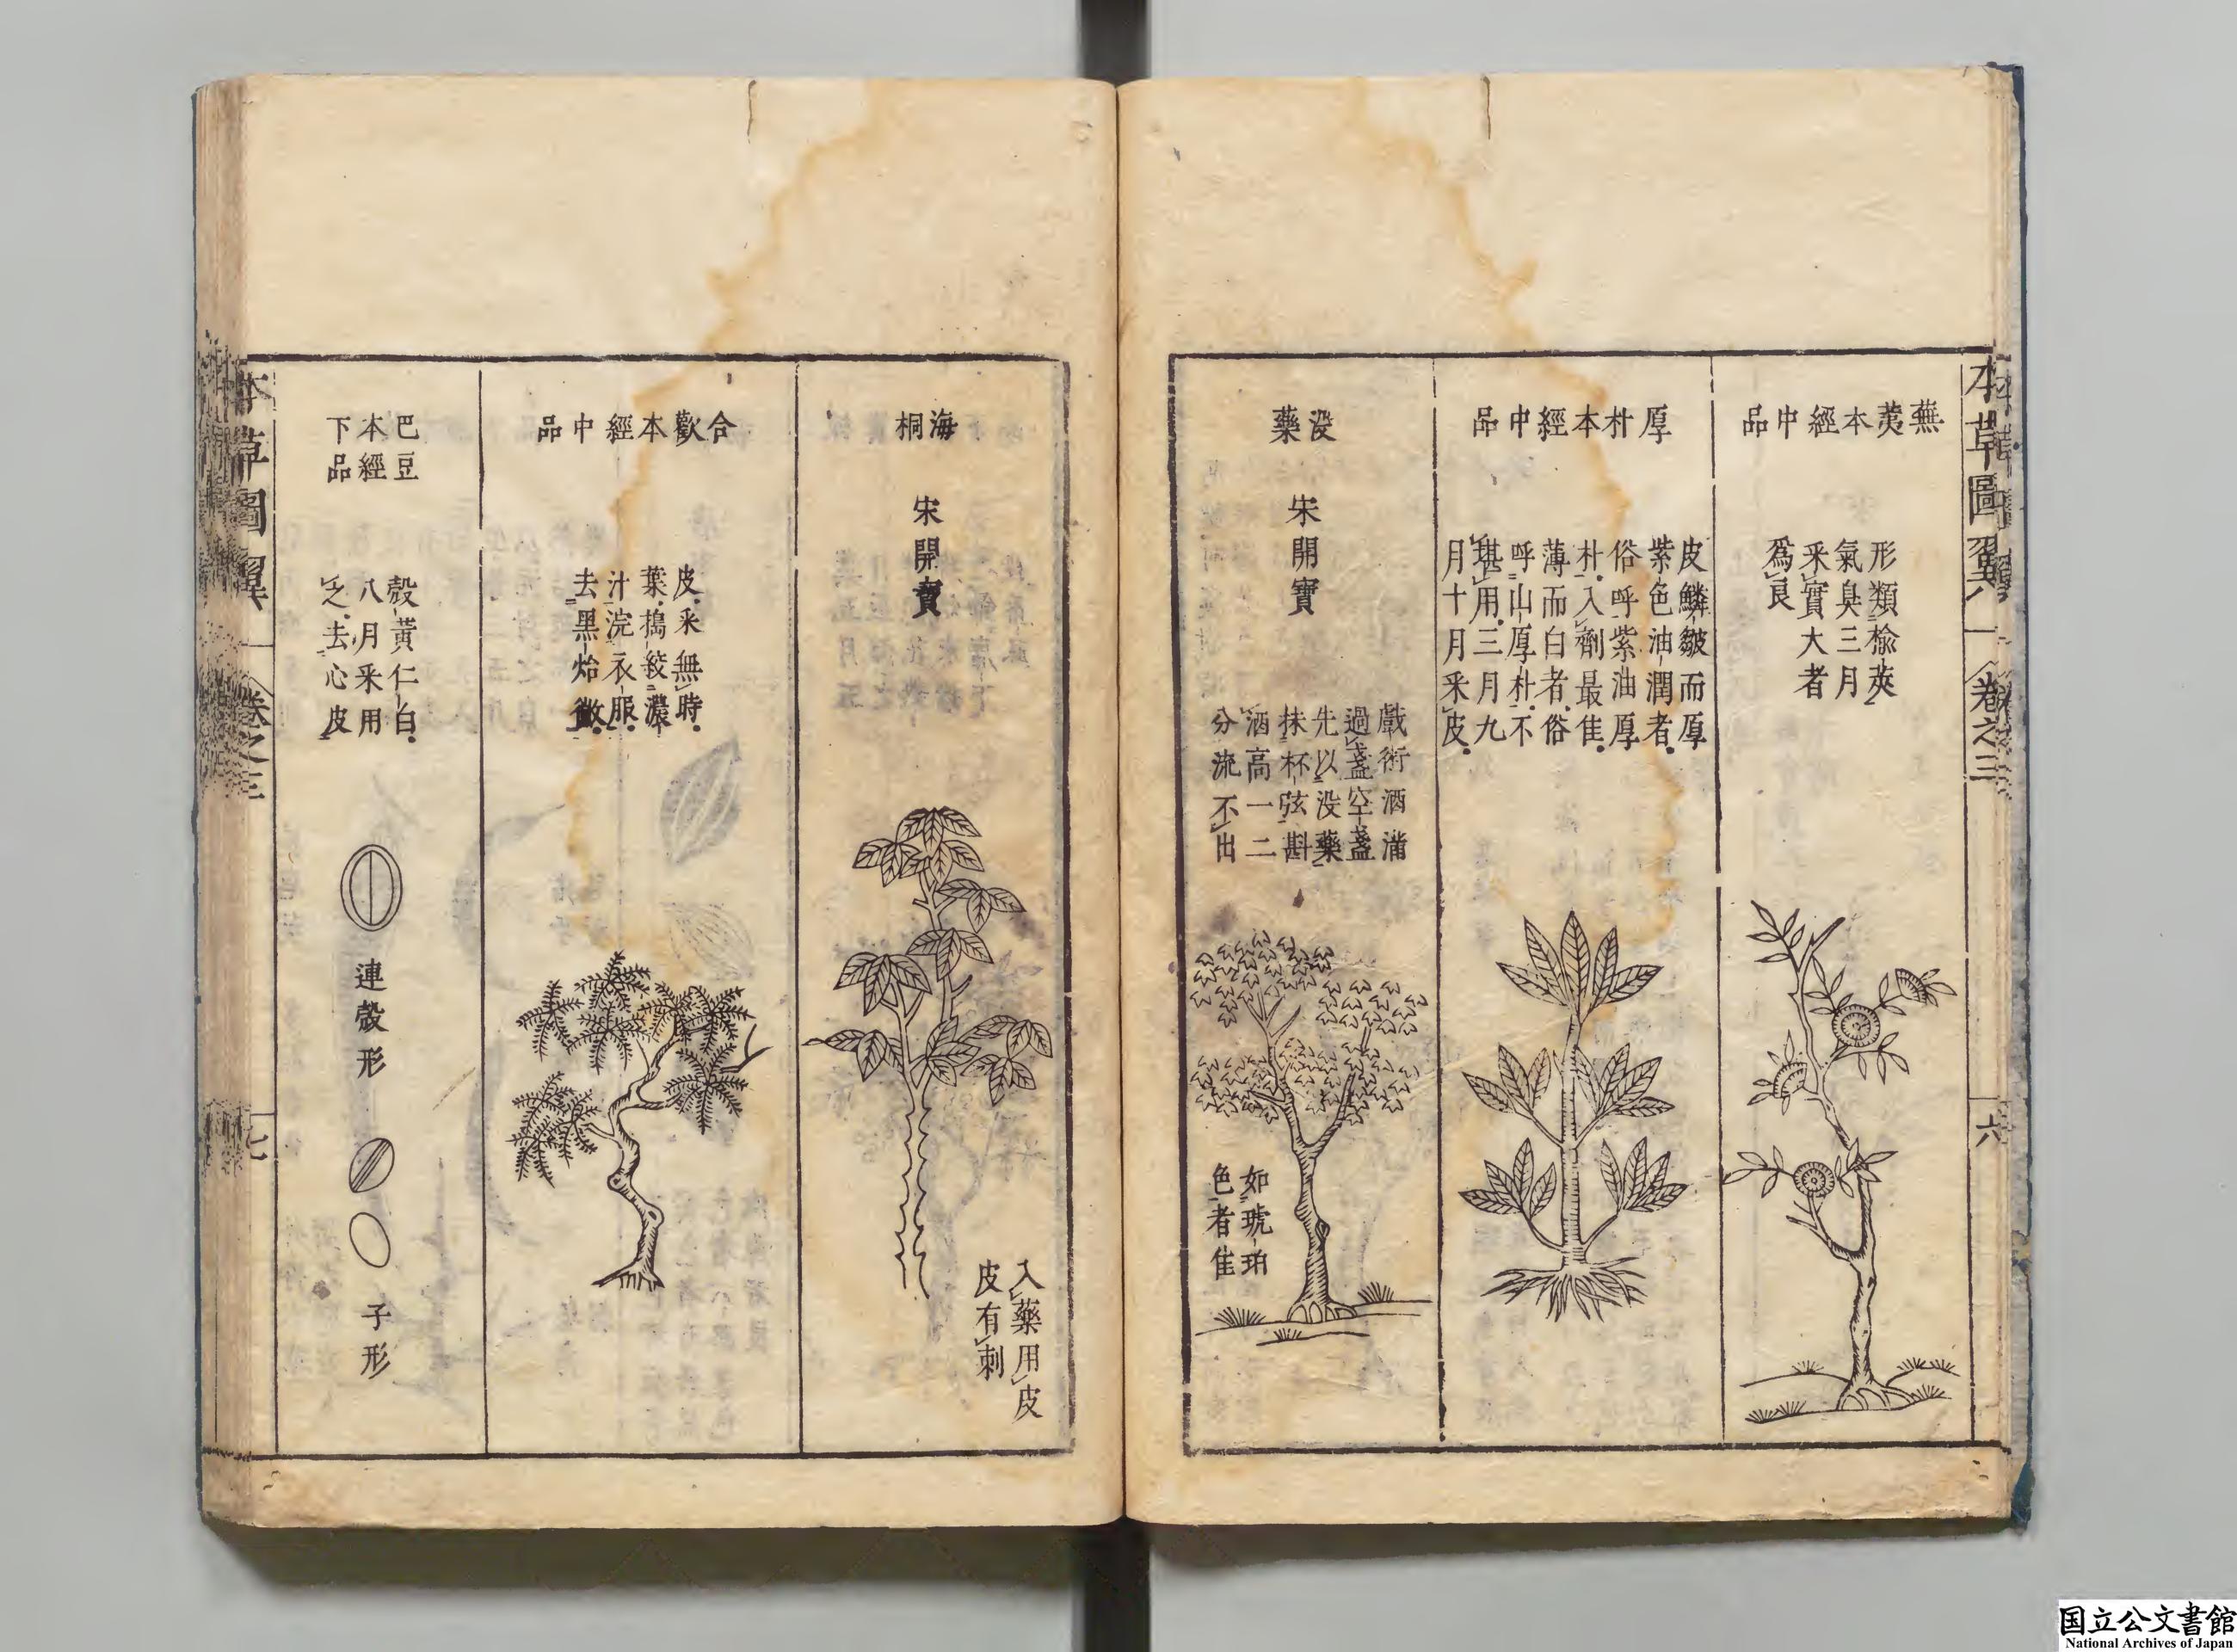 本草圖翼
卷之三
六
蕪荑本經中品
形類榆莢
氣臭三月
采實大者
爲良
厚朴本經中品
皮鱗皺而厚
紫色油潤者
俗呼紫油厚
朴入劑最佳
薄而白者俗
呼山厚朴不
堪用三月九
月十月采皮
没藥
宋開寶
戲術酒滿
過盞空盞
先以没藥
抹杯弦斟
酒高一二
分流不出
如琥珀
色者佳
海桐
宋開寶
入藥用皮
皮有刺
合歡本經中品
皮采無時
葉搗絞濃
汁浣衣服
去黑炲黴
巴豆
本經
下品
殼黃仁白
八月采用
之去心皮
連殼形
子形
本草圖翼
卷之三
七
国立公文書館
National Archives of Japan